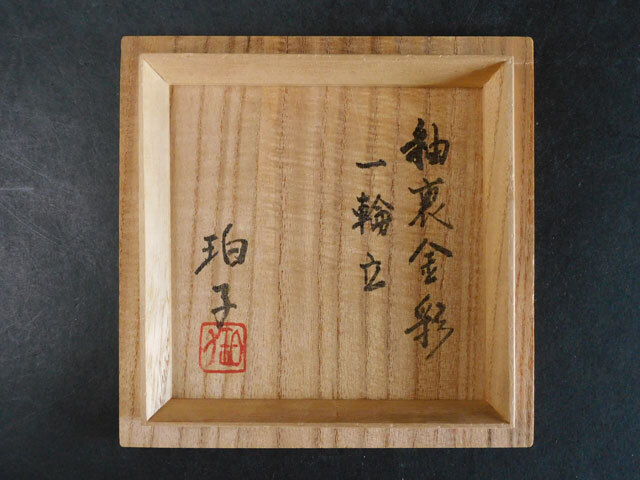 釉裏金彩
一輪立
珀子